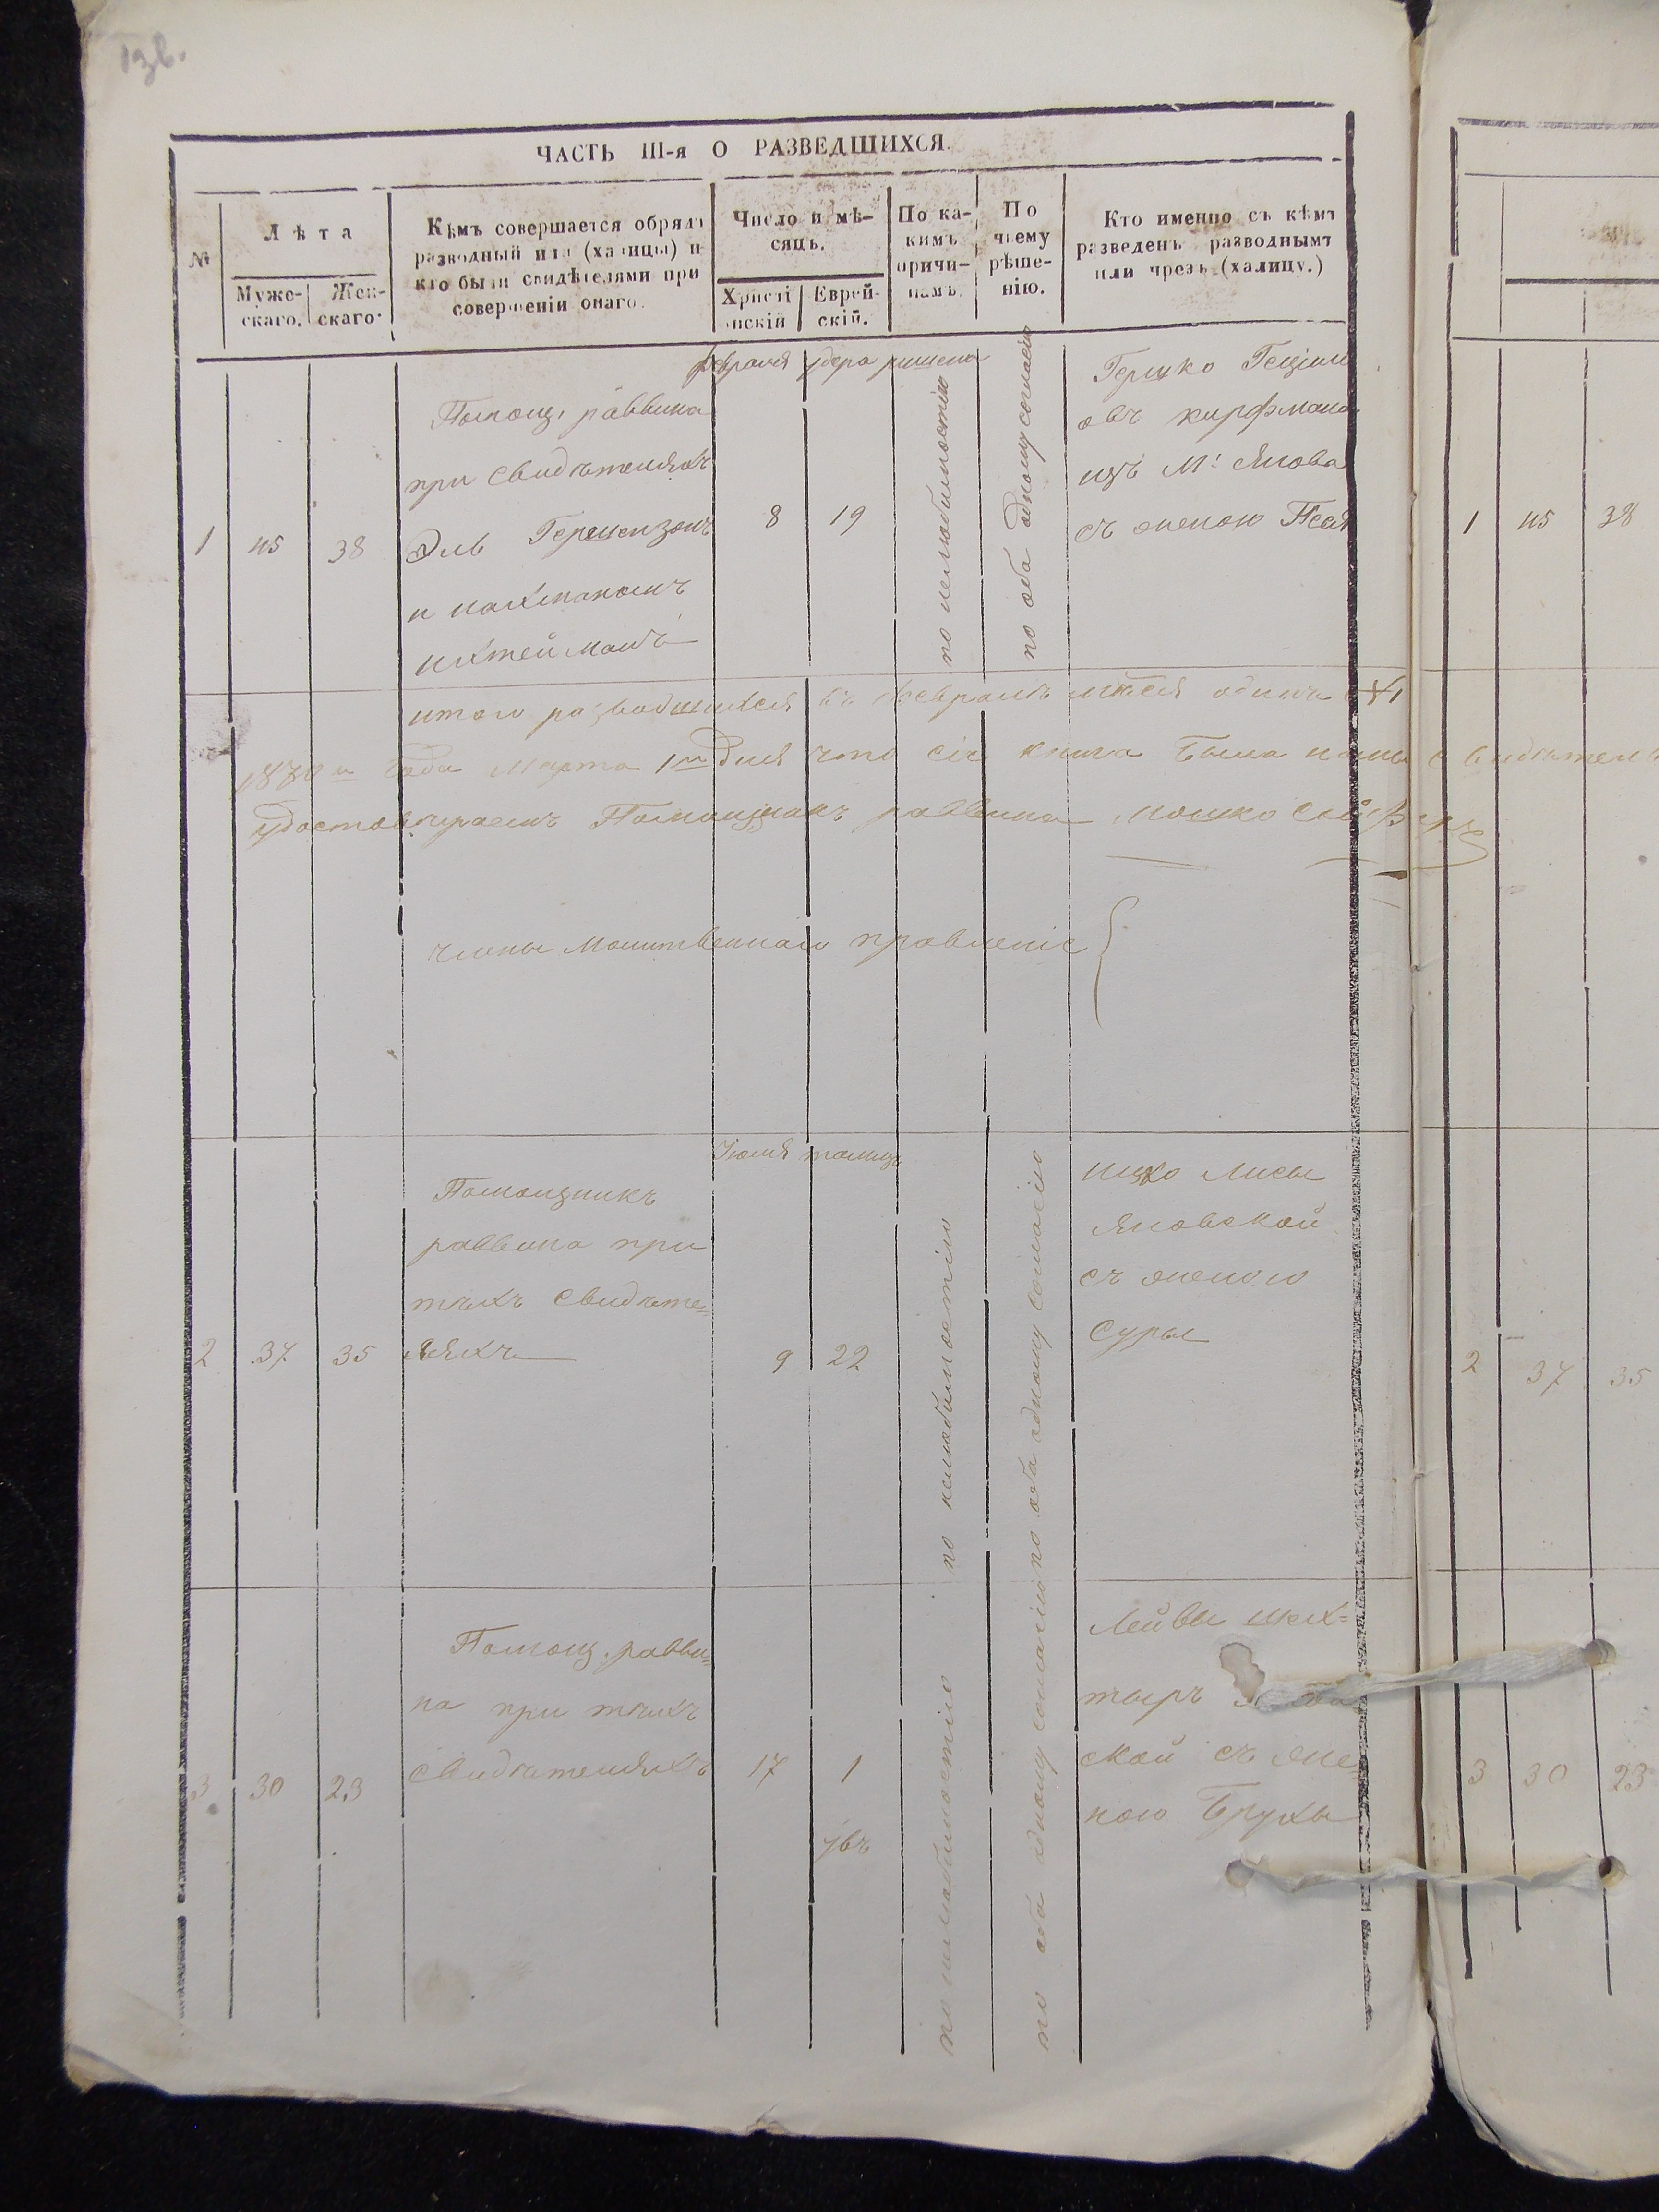 ЧАСТЬ III-я О РАЗВЕДШИХСЯ.
№
Лѣта
Муже-
скаго.
Жен-
скаго.
Кѣмъ совершается обрядъ
разводный или (халицы) и
кто были свидѣтелями при
совершеніи онаго.
Число и мѣ-
сяцъ.
Христі
анскій
Еврей-
скій.
По ка-
кимъ
причи-
намъ.
По
чьему
рѣше-
нію.
Кто именно съ кѣмъ
разведенъ разводнымъ
или чрезъ (халицу.)
февраля удера ришена
1
45
38
Помощ. раввина
при свидѣтеляхъ
Эль Гершензонъ
и нахманомъ
8
19
по нелюбимостію
по оба одному согласію
Гершко
овъ
изъ М: Янова
съ женою Песя
итого разводшихся въ февралѣ мѣсяцѣ одинъ 1
1870 года Марта 1 Дня что сія книга была
удостовѣраемъ Помощникъ раввина Мошко
члены Молитвеннаго правленіе
Іюля тамуз
2
37
35
Помощникъ
раввина при
тѣхъ свидѣте=
ляхъ
9
22
по нелюбимостію
по оба одному согласію
Ицко Лисы
Яновской
съ женою
Суры
3
30
23
Помощ. равви=
на при тѣхъ
свидѣтеляхъ
17
1
увъ
по нелюбимостію
по оба одному согласію
Лейвы шех=
тыръ
ской съ же
ною Брухы
1 45 38
2 37 35
3 30 23